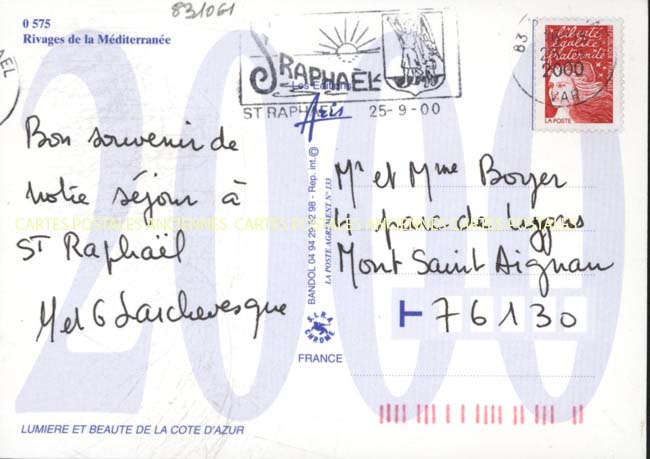 831061
0 575
Rivages de la Méditerranée
ST RAPHAËL
ST RAPHAEL 25-9-00
Les Editions
Aris
83
2000
VAR
liberté
égalité
fraternité
LA POSTE
Bon souvenir de
notre séjour à
ST Raphaël
M et G Larchevesque
BANDOL 04 94 29 82 98 - Rep. int. ©
LA POSTE AGREMENT N° 133
S.I.R.A.
CHROME
FRANCE
Mr et Mme Boyer
Mont Saint Aignan
T 76130
CARTES POSTALES ANCIENNES CARTES POSTALES ANCIENNES CARTES POSTALES
2000
LUMIERE ET BEAUTE DE LA COTE D'AZUR